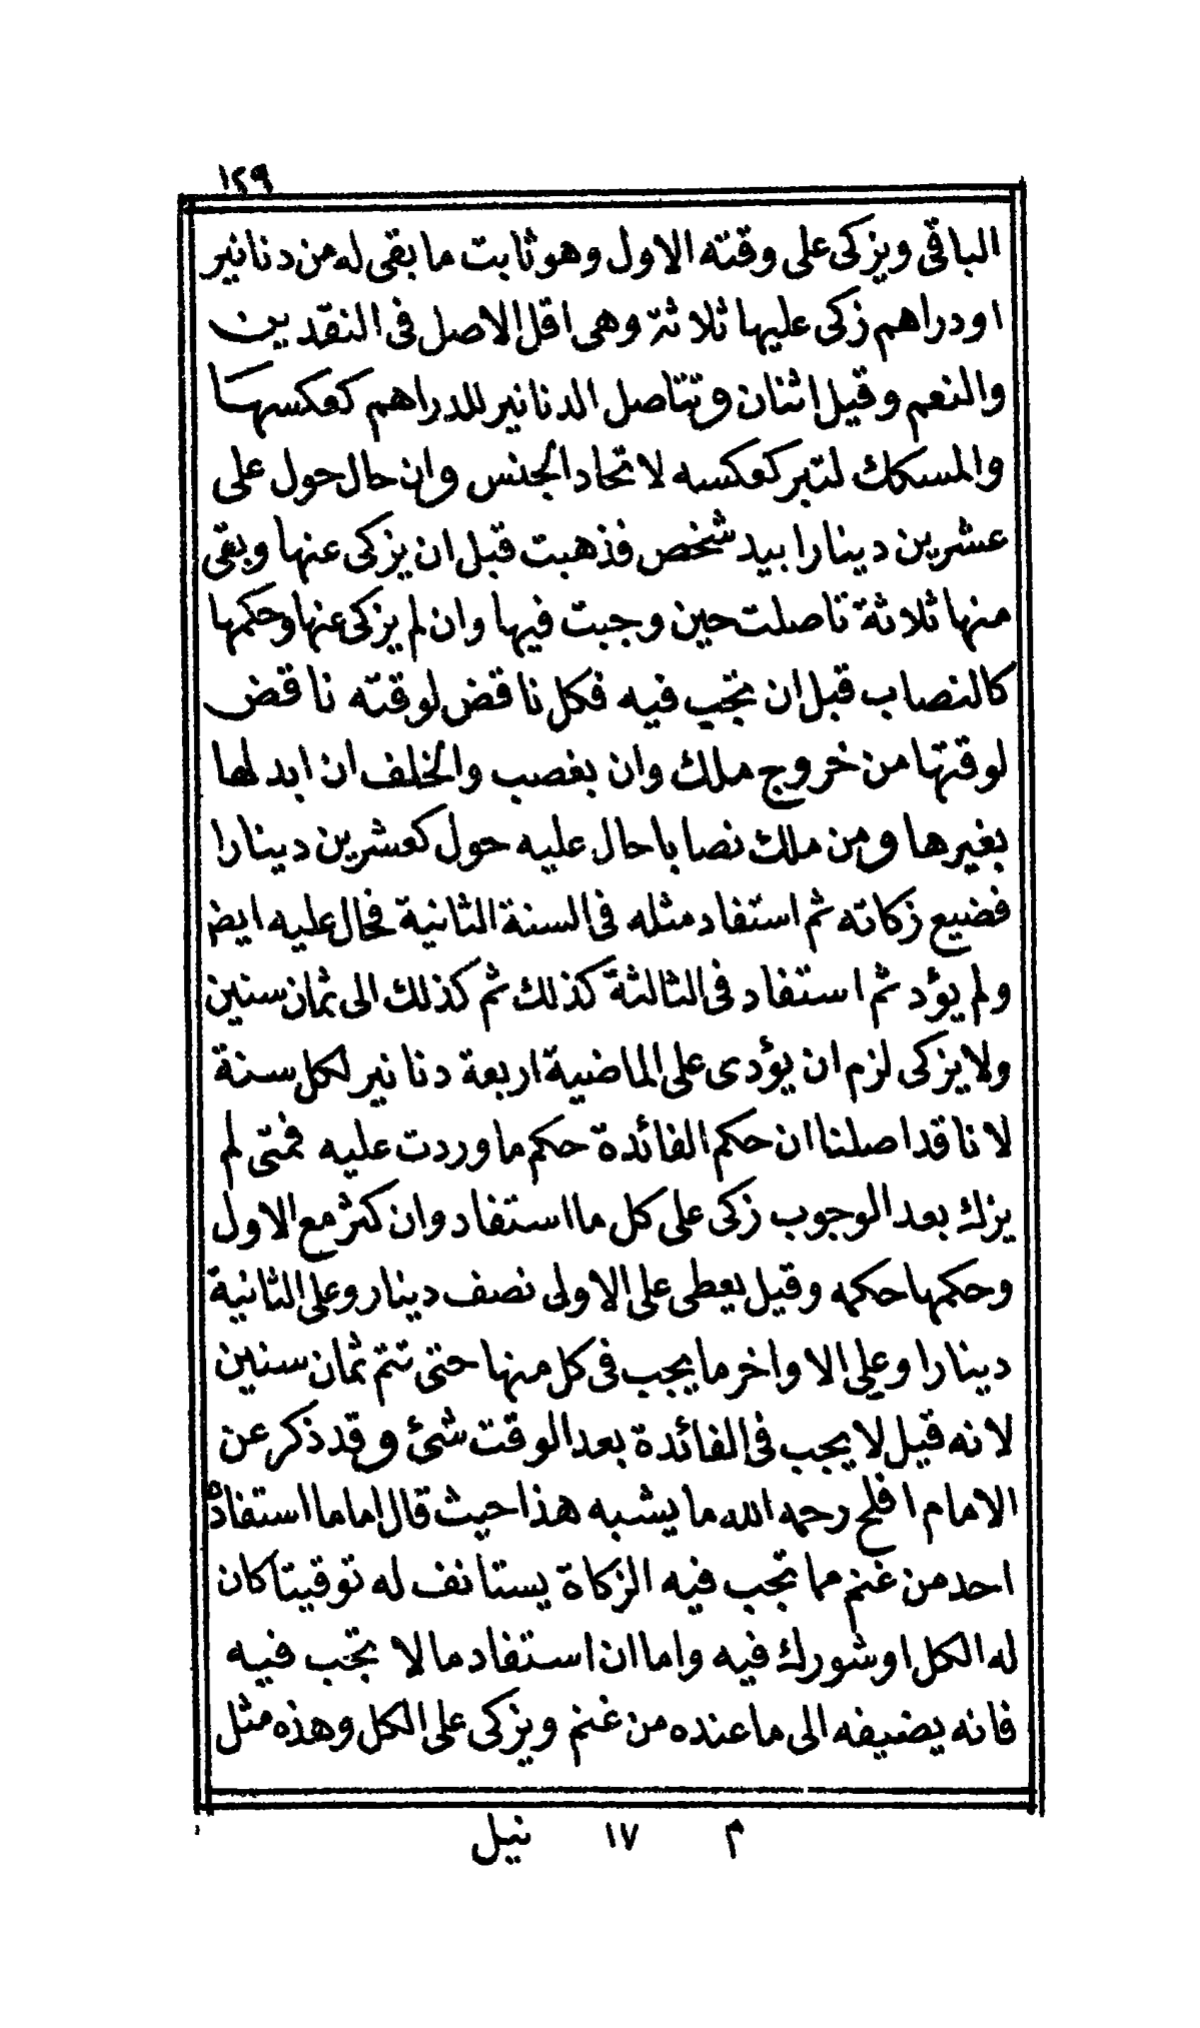 ١٢٩
الباقى ويزكى على وقته الاول وهو ثابت ما بقى له من دنانير
او دراهم زكى عليها ثلاثة وهى اقل الاصل فى النقدين
والنعم وقيل اثنان وتتاصل الدنانير للدراهم كعكسها
والمسكك لتبر كعكسه لاتحاد الجنس وان حال حول على
عشرين دينارا بيد شخص فذهبت قبل ان يزكى عنها وبقى
منها ثلاثة تاصلت حين وجبت فيها وان لم يزكى عنها وحكمها
كالنصاب قبل ان تجب فيه فكل ناقض لوقته ناقض
لوقتها من خروج ملك وان بغصب والخلف ان ابدلها
بغيرها ومن ملك نصابا حال عليه حول كعشرين دينارا
فضيع زكاته ثم استفاد مثله فى السنة الثانية فحال عليه ايض
ولم يؤد ثم استفاد فى الثالثة كذلك ثم كذلك الى ثمان سنين
ولا يزكى لزم ان يؤدى على الماضية اربعة دنانير لكل سنة
لانا قد اصلنا ان حكم الفائدة حكم ما وردت عليه فمتى لم
يزك بعد الوجوب زكى على كل ما استفاد وان كثر مع الاول
وحكمها حكمه وقيل يعطى على الاولى نصف دينار وعلى الثانية
دينارا وعلى الاواخر ما يجب فى كل منها حتى تتم ثمان سنين
لانه قيل لا يجب فى الفائدة بعد الوقت شئ وقد ذكر عن
الامام افلح رحمه الله ما يشبه هذا حيث قال اما ما استفاد
احد من غنم مما تجب فيه الزكاة يستانف له توقيتا كان
له الكل او شورك فيه واما ان استفاد ما لا تجب فيه
فانه يضيفه الى ما عنده من غنم ويزكى على الكل وهذه مثل
م ١٧ نيل